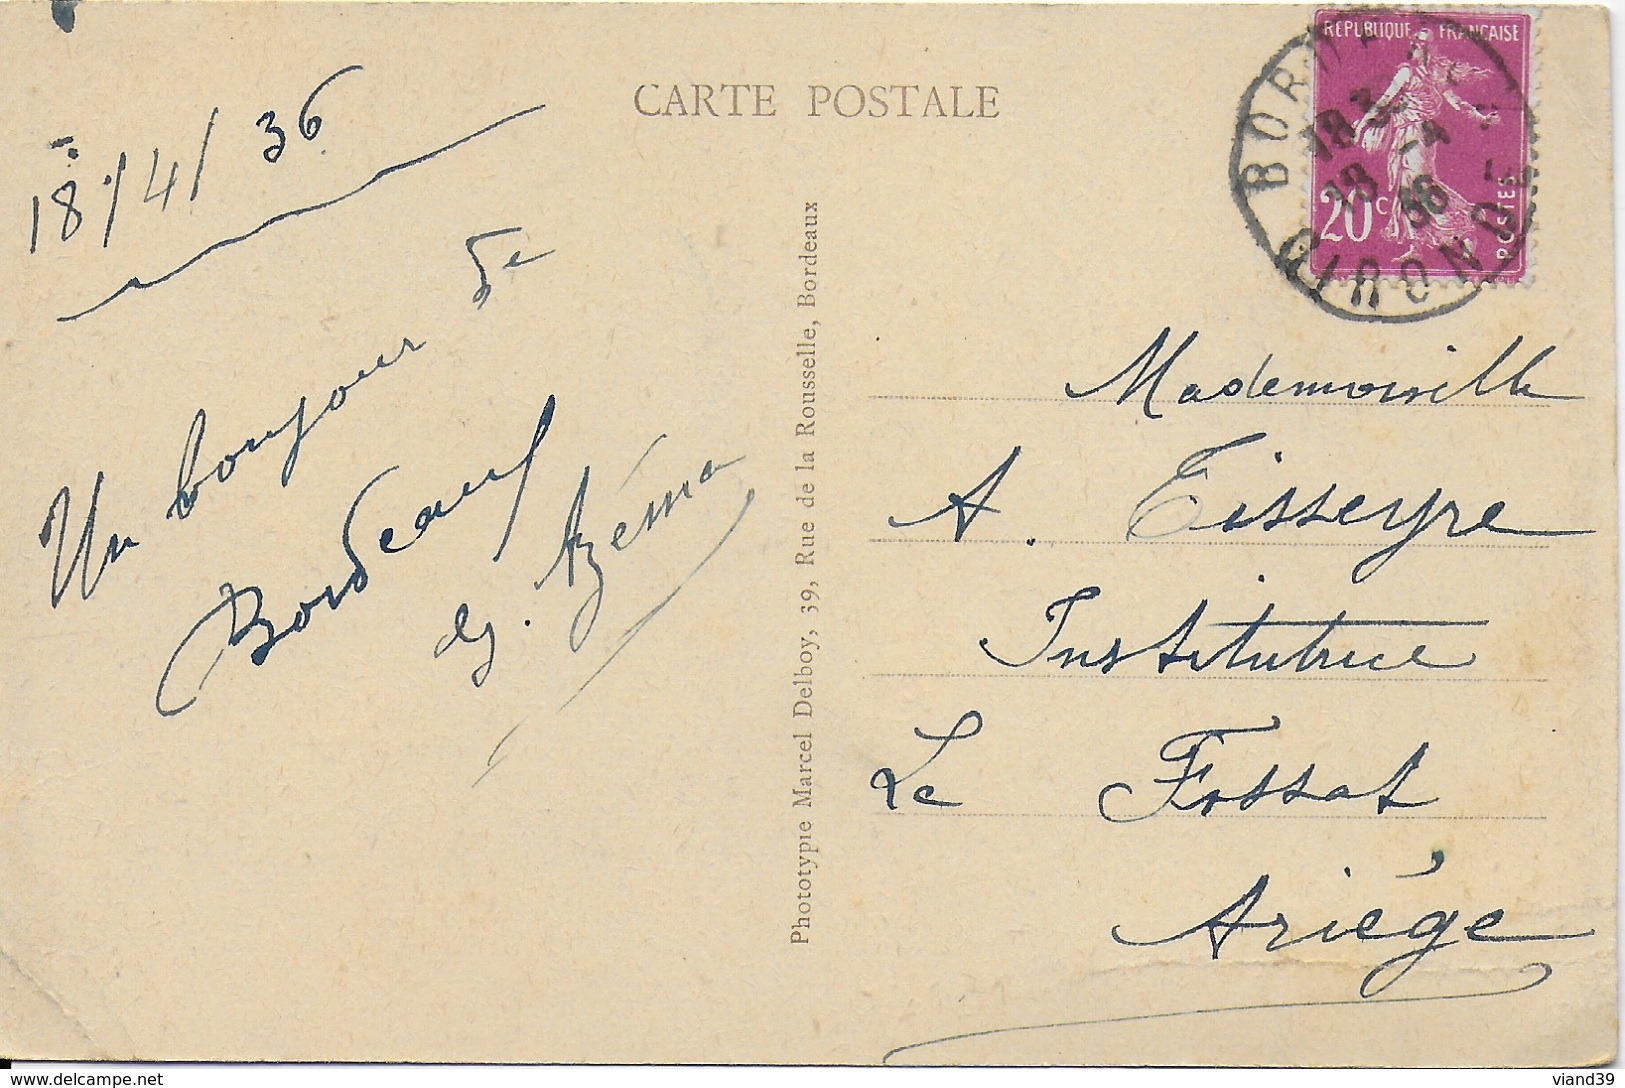 CARTE POSTALE
18/4/36
Un bonjour de
Bordeaux
Azéma
Phototypie Marcel Delboy, 39, Rue de la Rousselle, Bordeaux
RÉPUBLIQUE FRANÇAISE
20c
POSTES
GIRONDE
18 -4 36
Mademoiselle
A. Tisseyre
Institutrice
Le Fossat
Ariége
delcampe.net
viand39